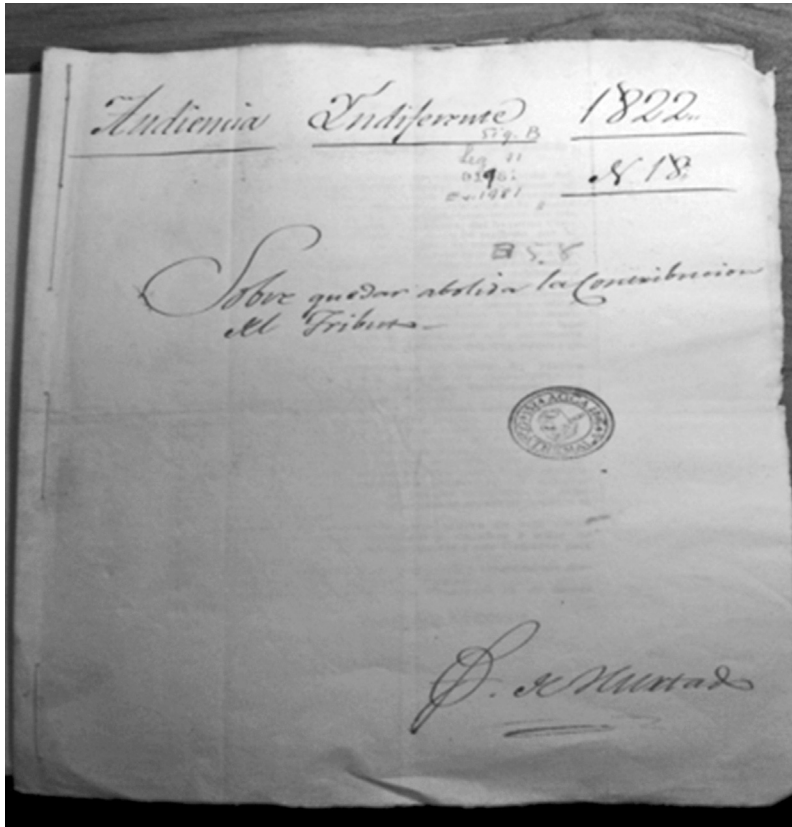 Audiencia Yndiferente 1822
Sig. B
Leg 11
N. 18.
B 5. 8
Sobre quedar abolida la Contribucion
del Tributo
S. de Hurtado